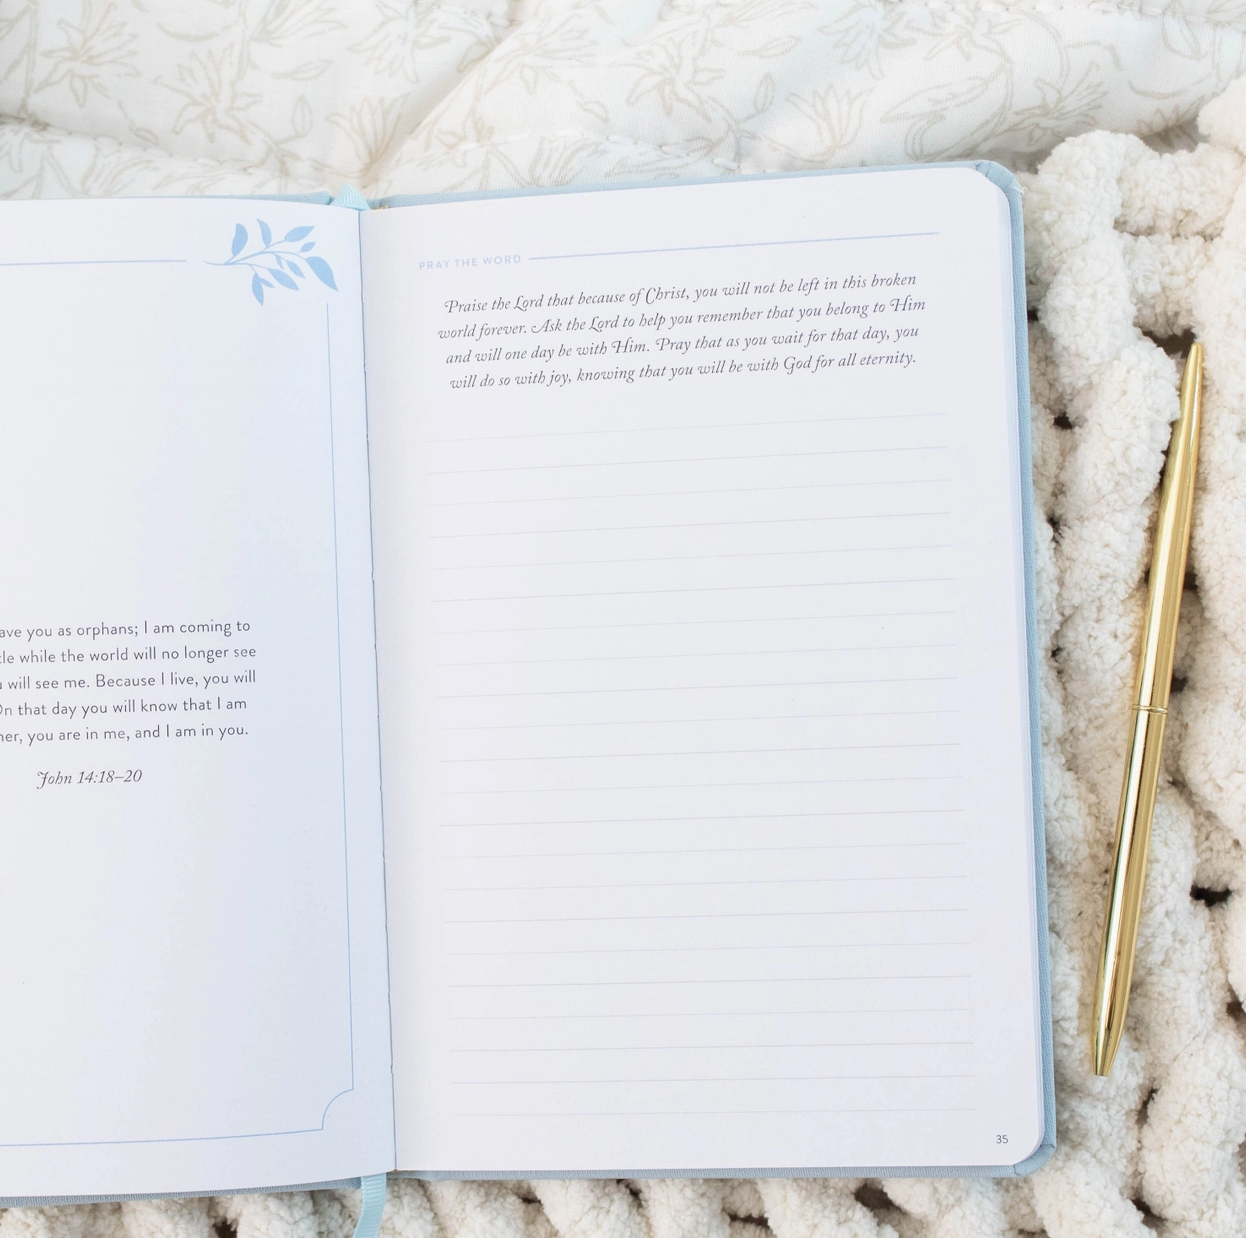 ave you as orphans; I am coming to
tle while the world will no longer see
u will see me. Because I live, you will
On that day you will know that I am
her, you are in me, and I am in you.
John 14:18–20
PRAY THE WORD
Praise the Lord that because of Christ, you will not be left in this broken
world forever. Ask the Lord to help you remember that you belong to Him
and will one day be with Him. Pray that as you wait for that day, you
will do so with joy, knowing that you will be with God for all eternity.
35